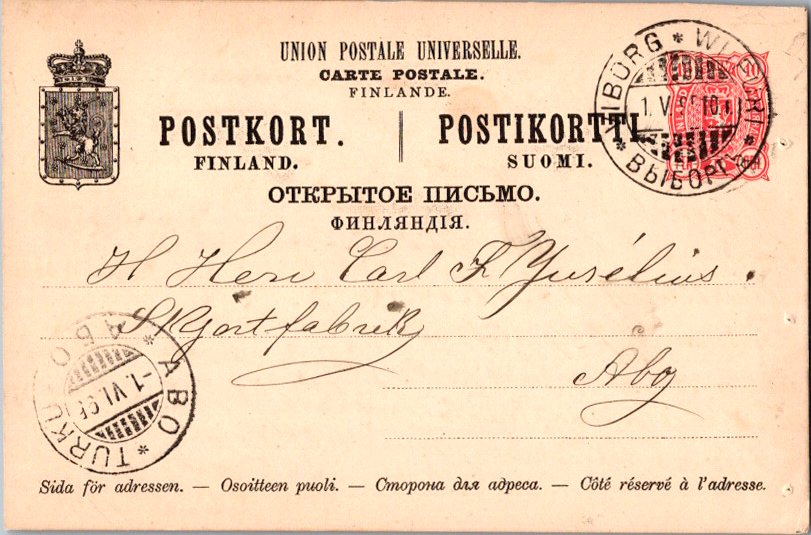 UNION POSTALE UNIVERSELLE.
CARTE POSTALE.
FINLANDE.
POSTKORT. POSTIKORTTI.
FINLAND. SUOMI.
ОТКРЫТОЕ ПИСЬМО.
ФИНЛЯНДІЯ.
WIBORG * WIIPURI * ВЫБОРГЪ
1. V
10
H Herr Carl F. Jusélius.
Skjortfabrik
Åbo
ÅBO * TURKU * АБО
-1. VI.
Sida för adressen. — Osoitteen puoli. — Сторона для адреса. — Côté réservé à l'adresse.